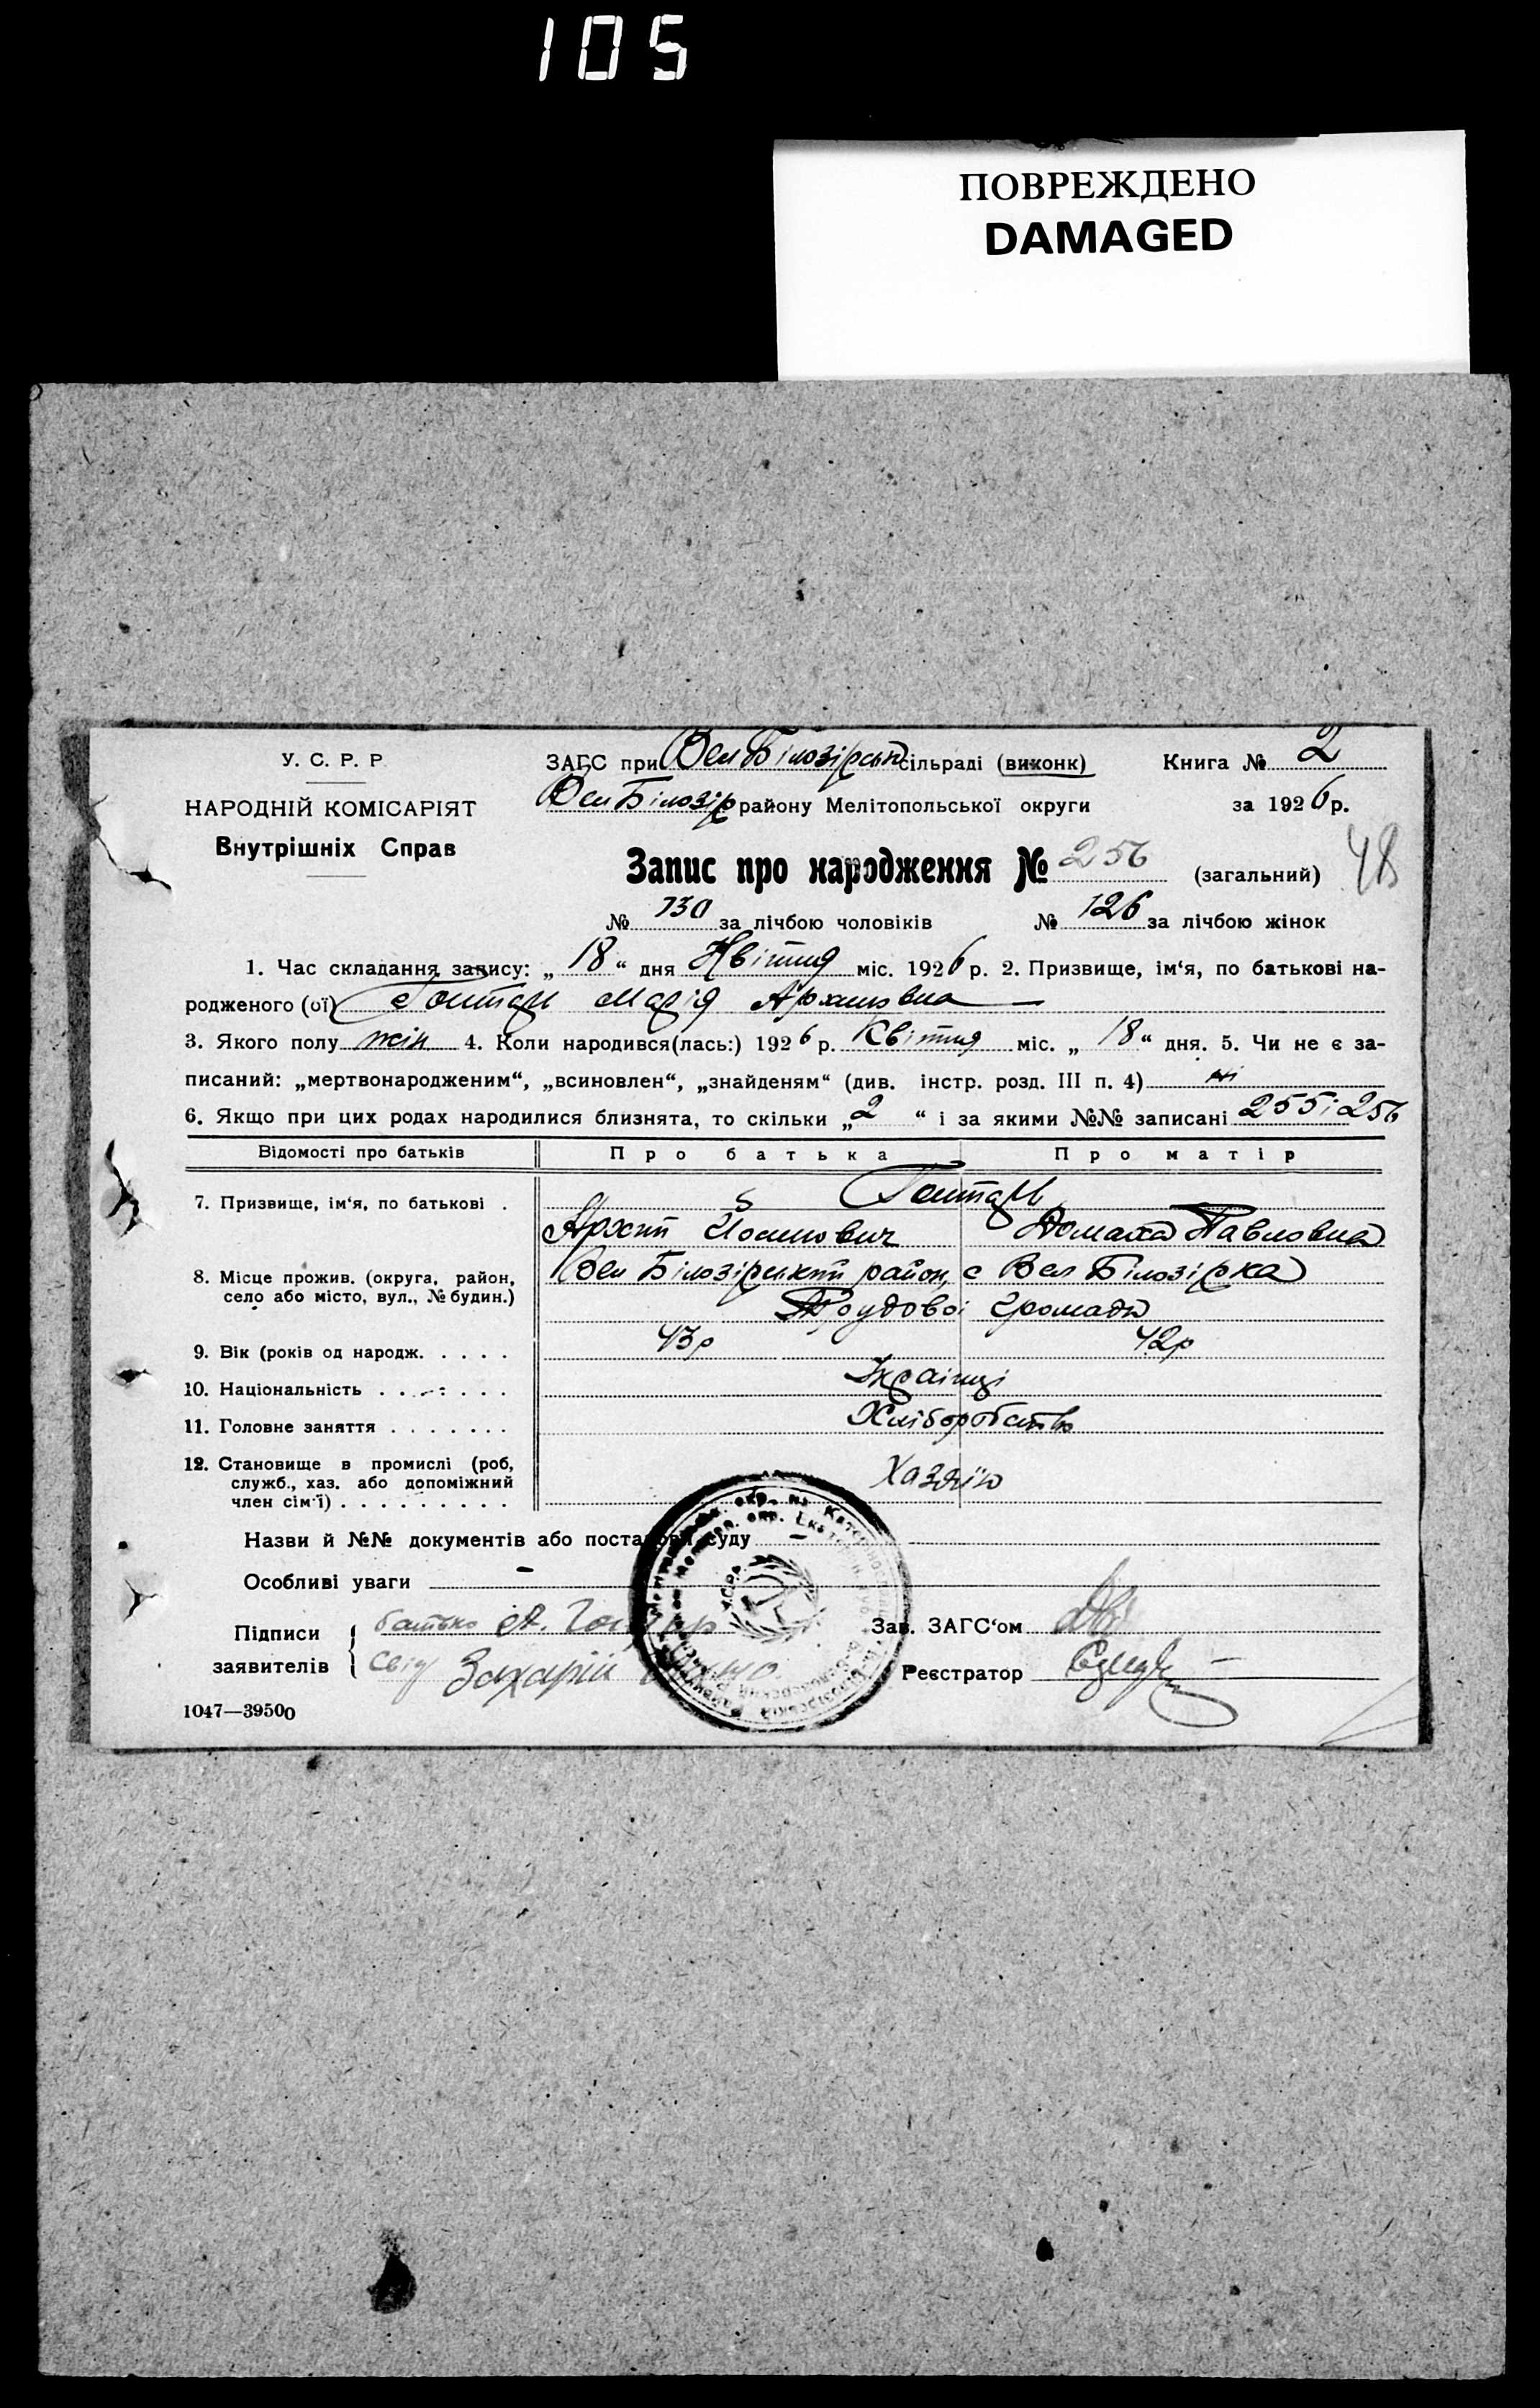 105
ПОВРЕЖДЕНО
DAMAGED
У. С. Р. Р.
НАРОДНІЙ КОМІСАРІЯТ
Внутрішніх Справ
ЗАГС при Вел Білозірськ сільраді (виконк) Книга № 2
Вел Білозір району Мелітопольської округи за 1926 р.
Запис про народження № 256 (загальний) 48
№ 130 за лічбою чоловіків № 126 за лічбою жінок
1. Час складання запису: „18“ дня Квітня міс. 1926 р. 2. Призвище, ім‘я, по батькові на-
родженого (ої) Марія Архиповна
3. Якого полу жін 4. Коли народився(лась:) 1926 р. Квітня міс. „18“ дня. 5. Чи не є за-
писаний: „мертвонародженим“, „всиновлен“, „знайденям“ (див. інстр. розд. III п. 4) ні
6. Якщо при цих родах народилися близнята, то скільки „2“ і за якими №№ записані 255 і 256
Відомості про батьків Про батька Про матір
7. Призвище, ім‘я, по батькові .
Архип Домаха Павловна
8. Місце прожив. (округа, район,
село або місто, вул., № будин.)
Вел Білозірський район, с Вел Білозірка
Трудової громади
9. Вік (років од народж. . . . . 43р 42р
10. Національність . . . . . . . Українці
11. Головне заняття . . . . . . . Хліборобство
12. Становище в промислі (роб,
служб., хаз. або допоміжний
член сім‘ї) . . . . . . . . .
Хазяїн
Назви й №№ документів або постанови суду –
Особливі уваги –
Підписи заявителів { батько А.
Свід Захарій
Зав. ЗАГС‘ом
Реєстратор
1047—39500